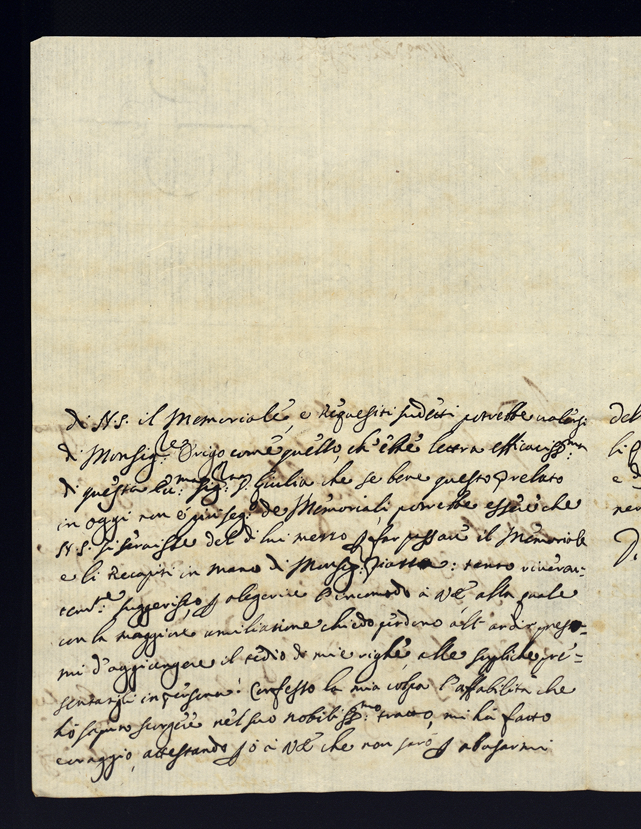 di N.S. il Memoriale, e Requisiti sudetti potrebbe valersi del
di Monsig:re Origo come quello, ch'ebbe lettera efficaciss:ma
di questa Ecc:ma Sig:ra D. Giulia che se bene questo Prelato e
in oggi non è più Seg:rio de Memoriali, potrebbe essere che
N.S. si servisse del di lui mezzo per far passare il Memoriale
e li Recapiti in mano di Monsig:re tanto riveren-
tem:te suggerisco per alegerire l'incomodo a V.E. alla quale
con la maggiore umiliazione chiedo perdono dell' ardir preso-
mi d'aggiungere il tedio di mie righe alle supliche pre-
sentargli in persona. Confesso la mia colpa l'affabilità che
hò saputo scorgere nel suo nobiliss:mo tratto, mi hà fatto
coraggio, attestando però a V.E. che non sarò per abusarmi